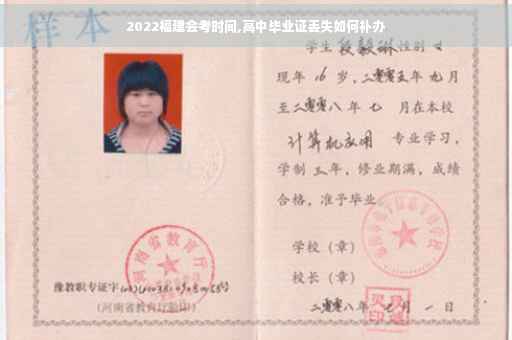 2022福建会考时间,高中毕业证丢失如何补办
样本
学生 段毅琳 性别 女
现年 16 岁,二零零五年 九 月
至二零零八年 七 月在本校
计算机应用 专业学习,
学制 三 年,修业期满,成绩
合格,准予毕业
学校(章)
校长(章)
豫教职专证字
(河南省教育厅验印)
二零零八年 七 月 一 日
河南省教育厅